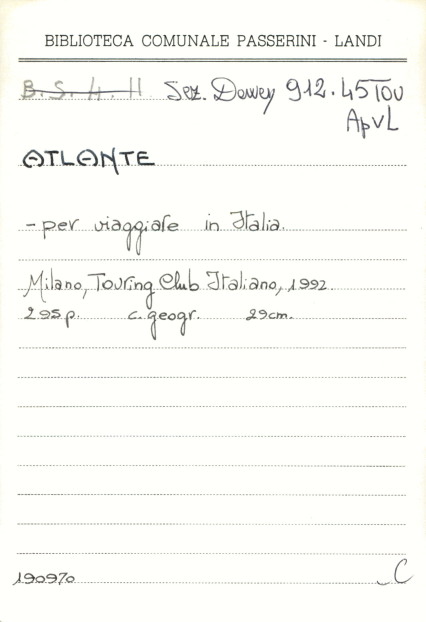 BIBLIOTECA COMUNALE PASSERINI - LANDI
B. S. 4. H Sez. Dewey 912.45TOU
ApVL
ATLANTE
- per viaggiare in Italia.
Milano, Touring Club Italiano, 1992
295p. c. geogr. 29cm.
190970 C